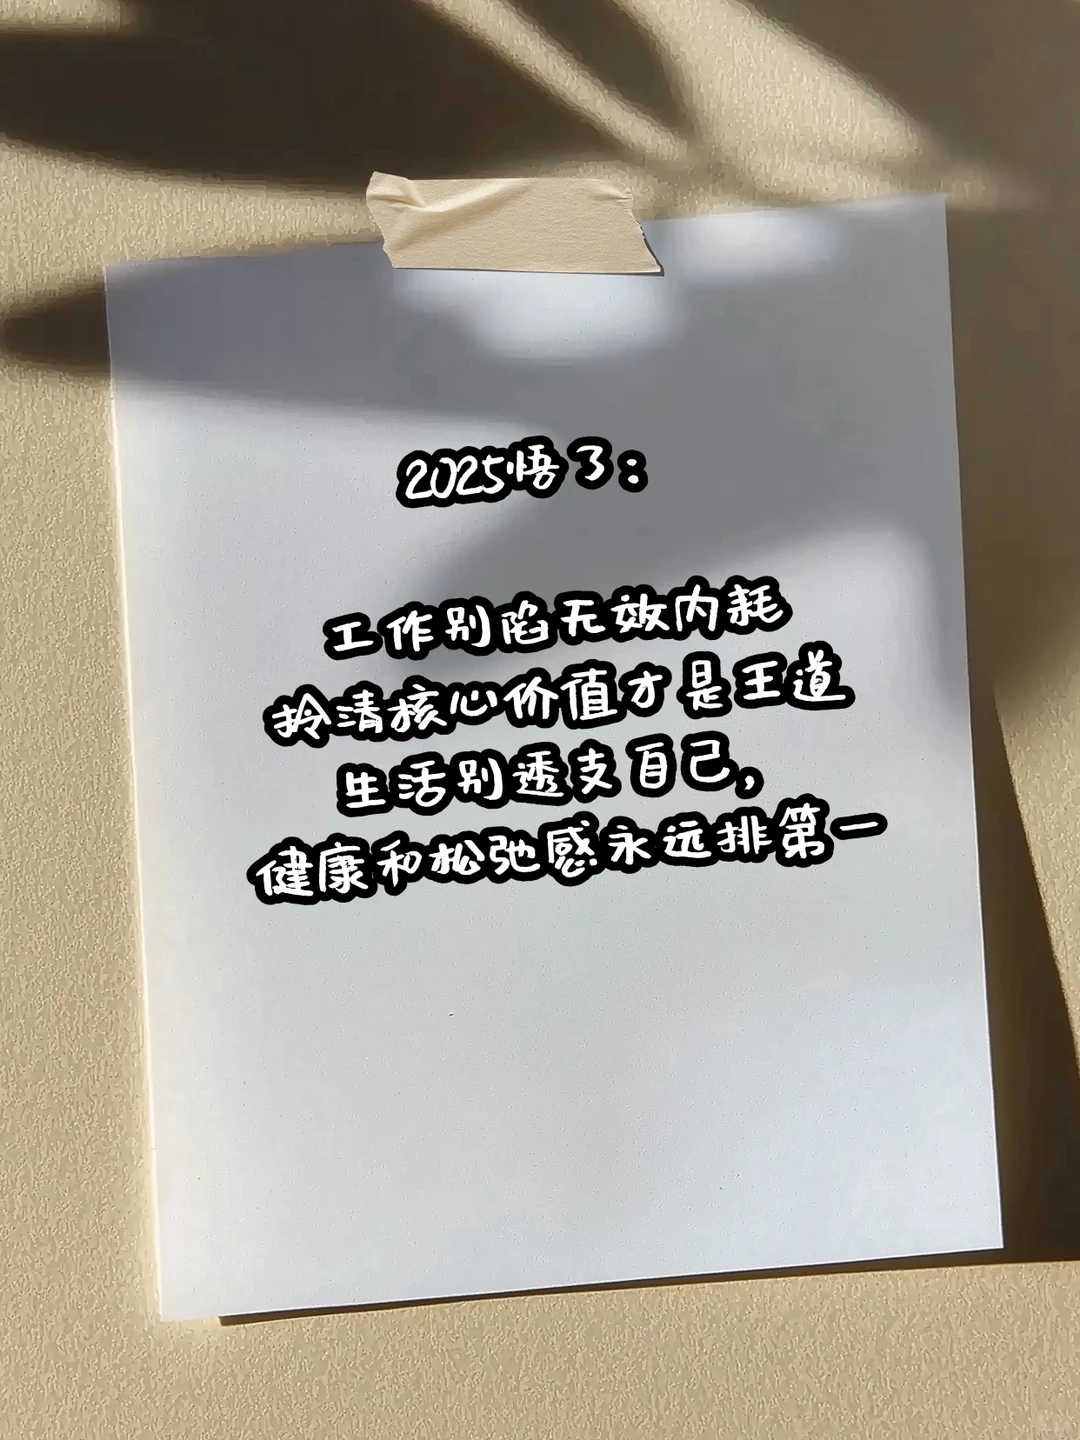 2025悟了：
工作别陷无效内耗
拎清核心价值才是王道
生活别透支自己，
健康和松弛感永远排第一